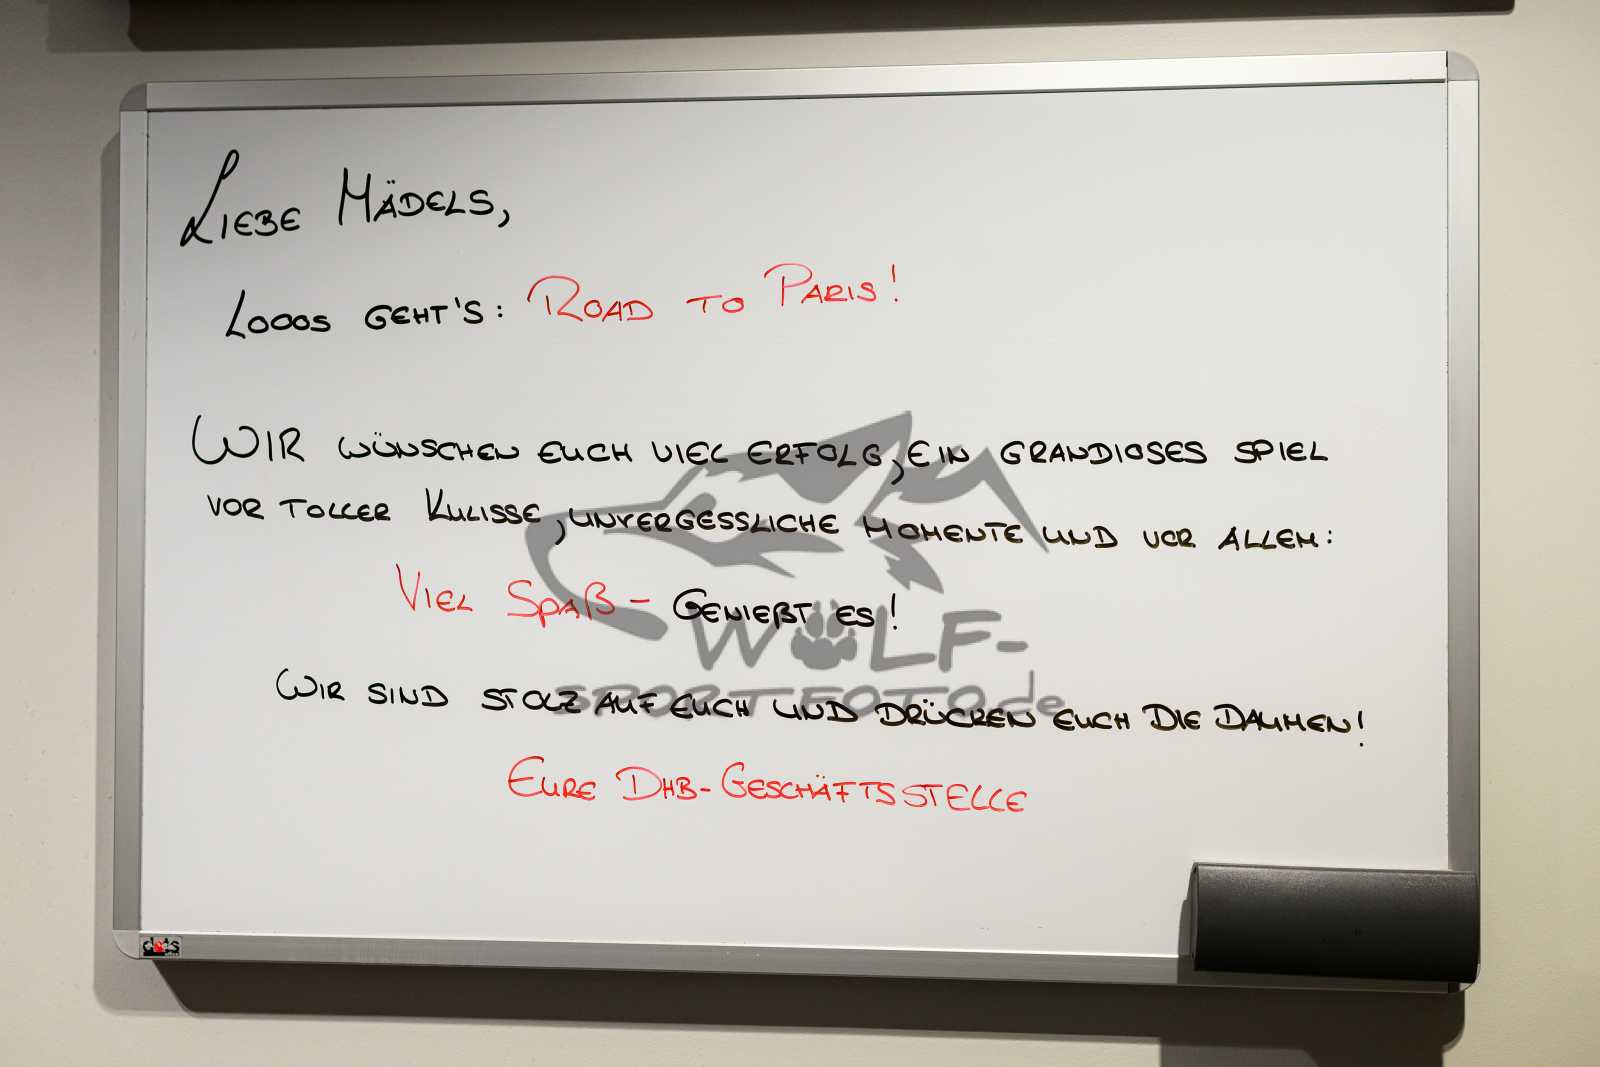 LIEBE MÄDELS,
LOOOS GEHT'S: ROAD TO PARIS!
WIR WÜNSCHEN EUCH VIEL ERFOLG, EIN GRANDIOSES SPIEL
VOR TOLLER KULISSE, UNVERGESSLICHE MOMENTE UND VOR ALLEM:
VIEL SPAß - GENIEßT ES!
WOLF-
SPORTFOTO.de
WIR SIND STOLZ AUF EUCH UND DRÜCKEN EUCH DIE DAUMEN!
EURE DHB-GESCHÄFTSSTELLE
dots